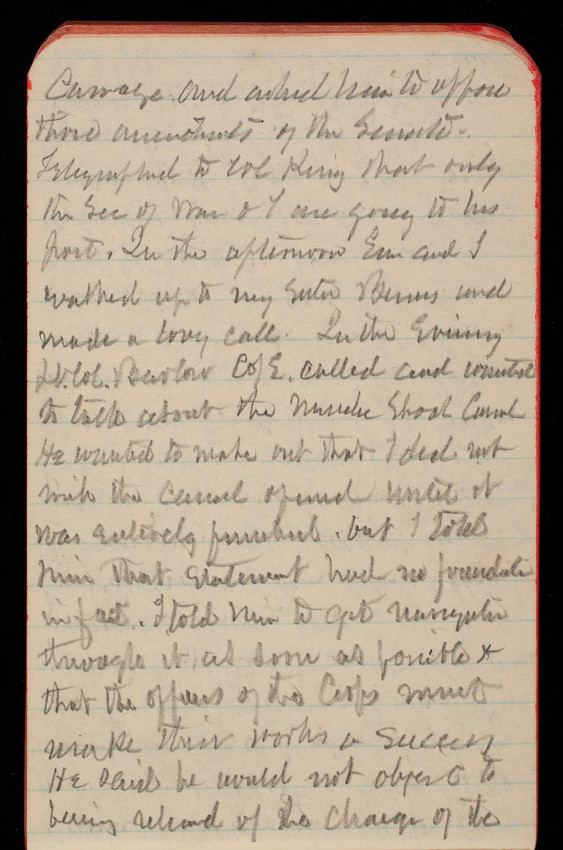 and asked him to oppose
those amendments of the Senate.
Telegraphed to Col King that only
the Sec of War & I are going to his
port. In the afternoon Em and I
walked up to my Sister Bemus and
made a long call. In the Evening
Lt. Col. Barlow C of E. called and wanted
to talk about the Muscle Shoal Canal
He wanted to make out that I did not
wish the canal opened until it
was entirely finished. but I told
him that statement had no foundation
in fact. I told him to get navigation
through it as soon as possible &
that the officers of the Corps must
make their works a success
He said he would not object to
being relieved of the charge of the